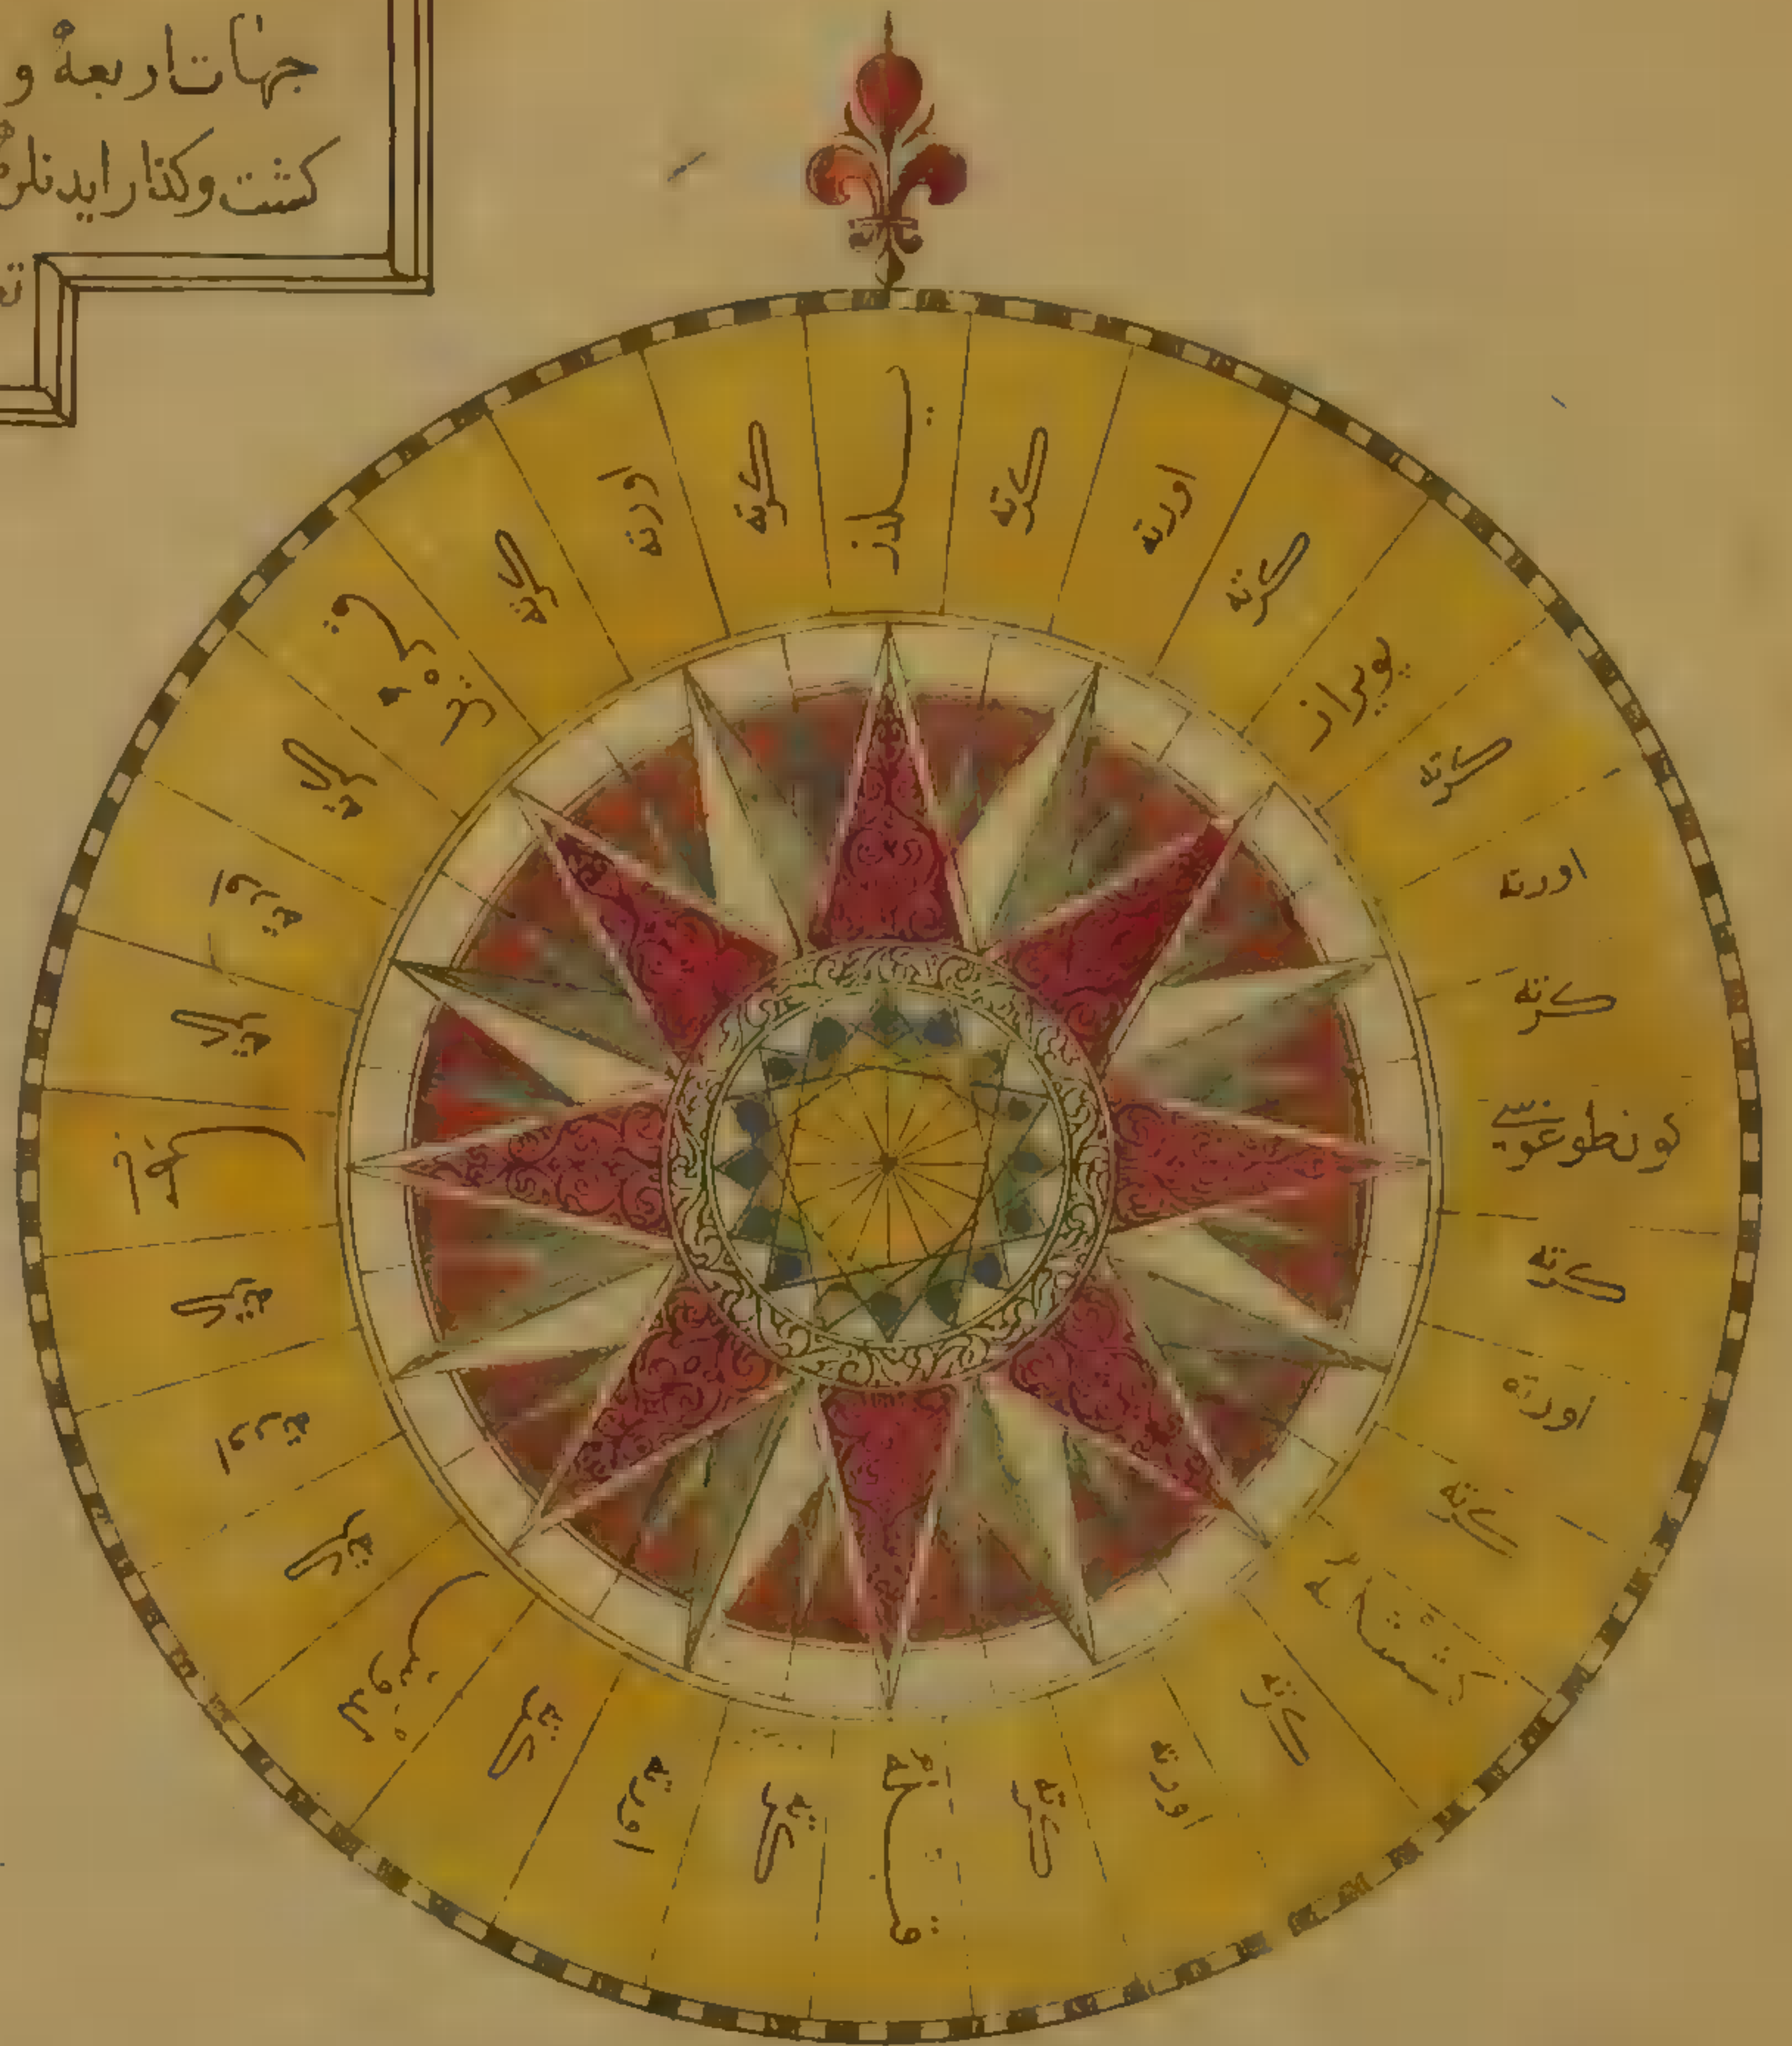 جهات اربعه و
كشت وكذار ايدنلره
يلدز
كرته
اورته
كرته
پويراز
كرته
اورته
كرته
كون طوغوسى
كرته
اورته
كرته
كششله
كرته
اورته
كرته
قبله
كرته
اورته
كرته
لدوس
كرته
اورته
كرته
كرته
اورته
كرته
قره يل
كرته
اورته
كرته